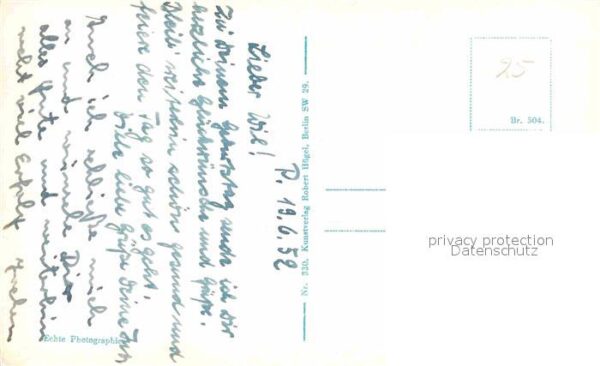 P. 19.6.52
Lieber Wil!
Zu Deinem Geburtstag sende ich Dir
herzliche Glückwünsche und Grüße.
Bleib weiterhin schön gesund und
feier den Tag so gut es geht.
viele liebe Grüße Deine
Auch ich schließe mich
an und wünsche Dir
alles Gute und weiterhin
recht viel Erfolg
Echte Photographie
Nr. 330. Kunstverlag Robert Högel, Berlin SW 29.
25
Br. 504.
privacy protection
Datenschutz